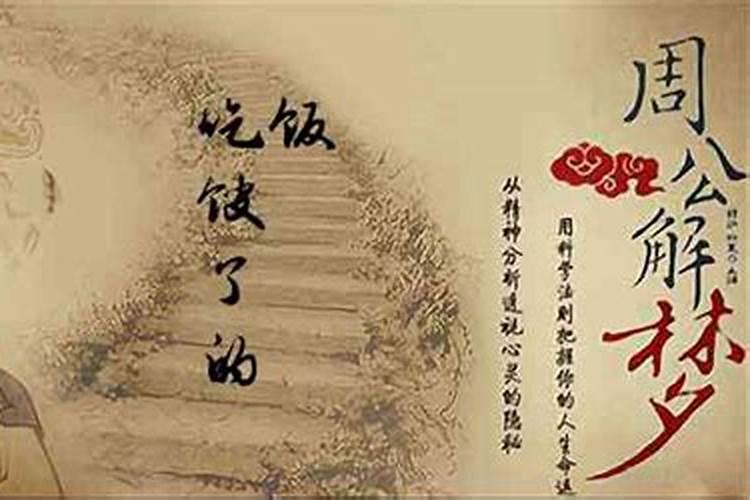 周公解梦
用科学法则把握你的人生命运
从精神分析透视心灵的隐秘
吃馊了的
饭